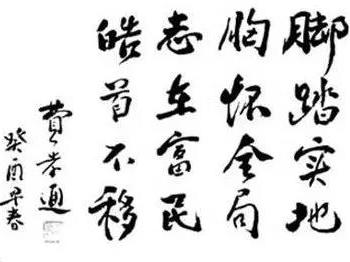 脚踏实地
胸怀全局
志在富民
皓首不移
费孝通
癸酉早春